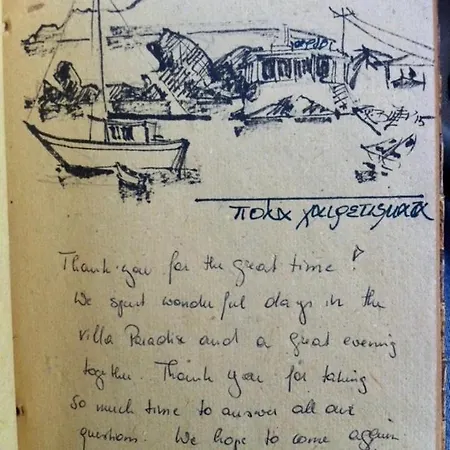 '15
πολλα χαιρετισματα
Thank you for the great time!
We spent wonderful days in the
villa Paradise and a great evening
together. Thank you for taking
so much time to answer all our
questions. We hope to come again